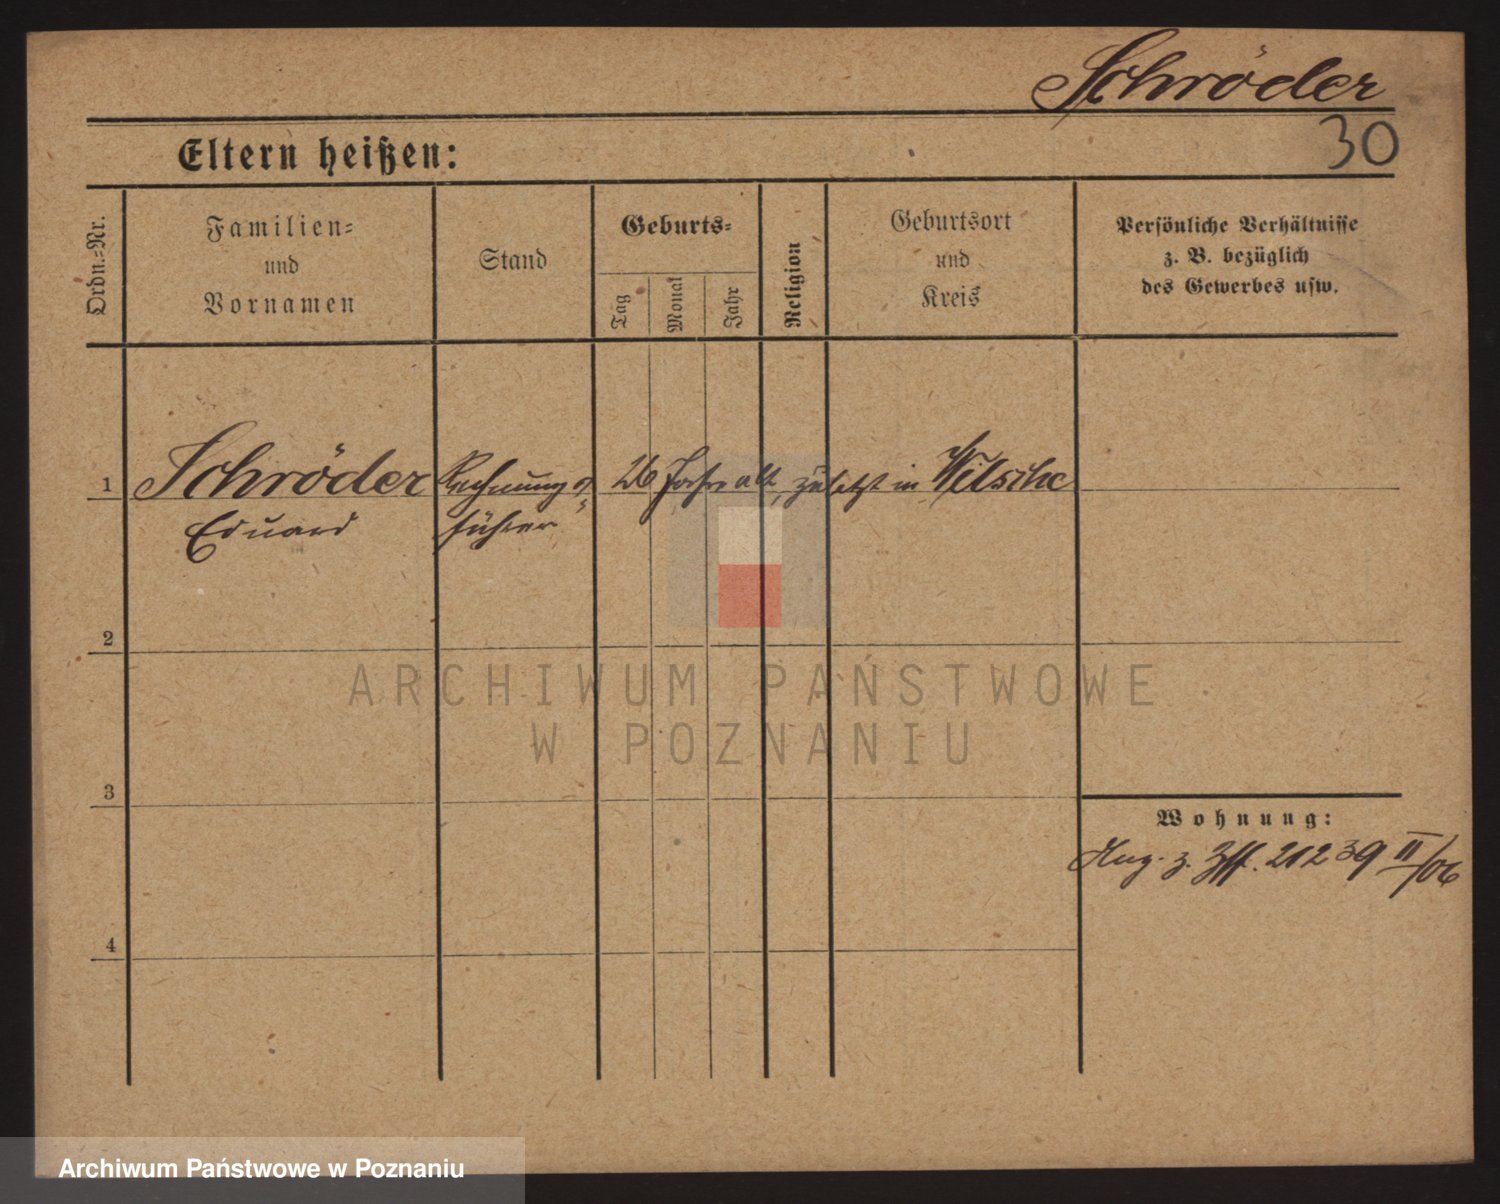 Schröder
30
Eltern heißen:
Ordn.-Nr.
Familien-
und
Vornamen
Stand
Geburts-
Tag
Monat
Jahr
Religion
Geburtsort
und
Kreis
Persönliche Verhältnisse
z. B. bezüglich
des Gewerbes usw.
1
Schröder
Eduard
Rechnungs-
führer
26 Jahre alt, zuletzt in
2
3
4
Wohnung:
z. 212 39 II/06
ARCHIWUM PAŃSTWOWE
W POZNANIU
Archiwum Państwowe w Poznaniu